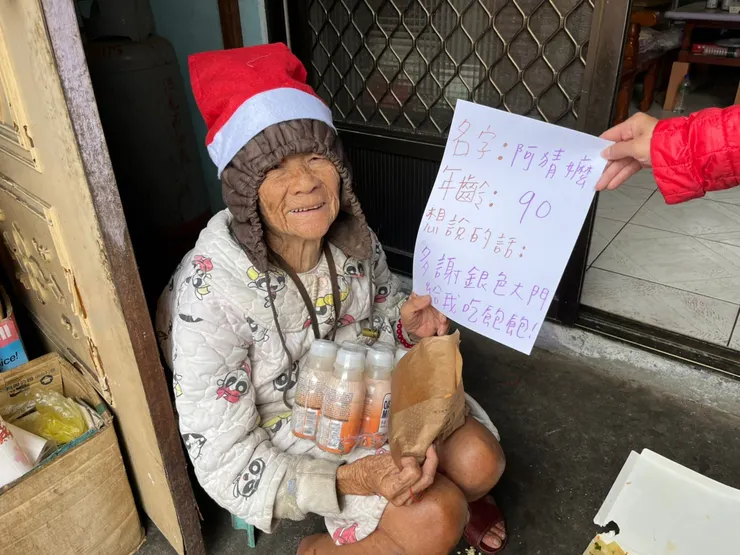 名字：阿猜嬤
年齡：90
想說的話：
多謝銀色大門
給我吃飽飽！